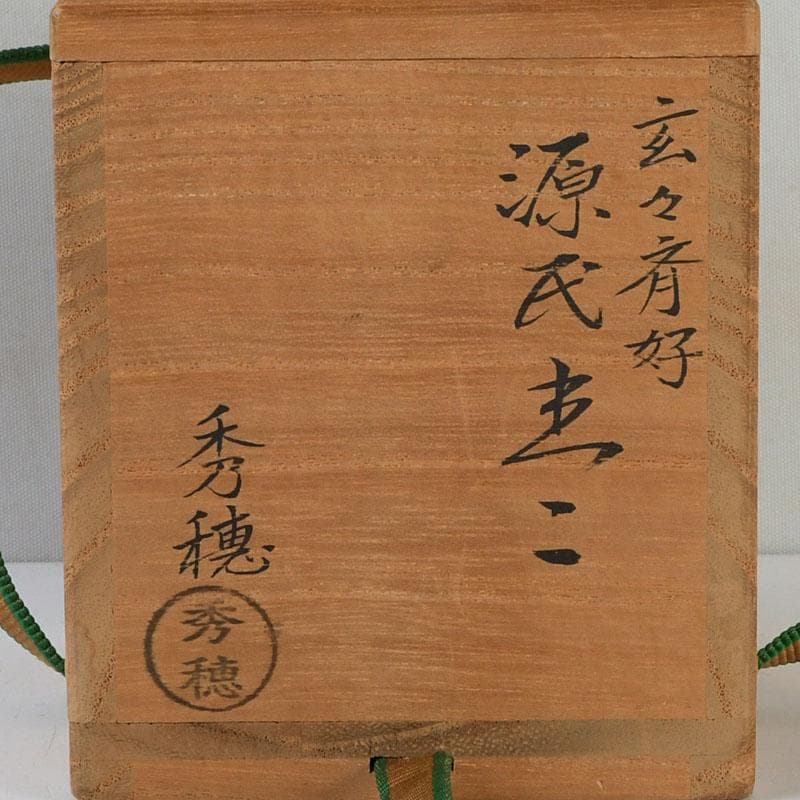 玄々斎好
源氏棗
秀穂
秀穂